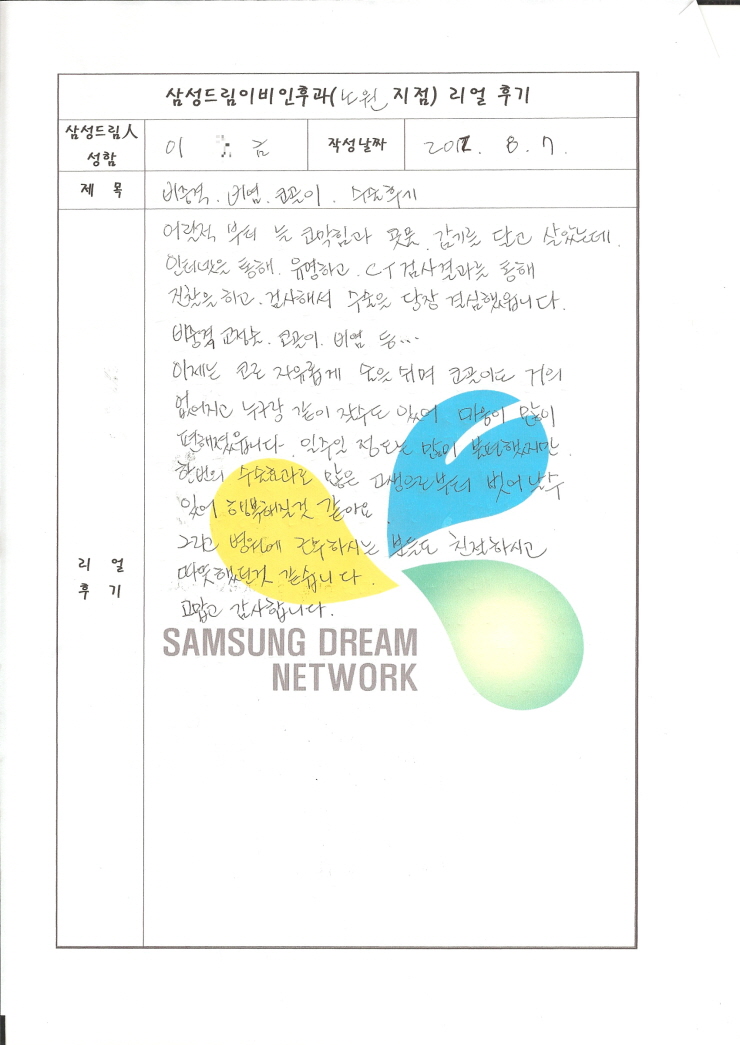 삼성드림이비인후과(노원 지점) 리얼 후기
삼성드림人 성함
이 금
작성날짜
2012. 8. 7.
제 목
비중격. 비염. 코골이. 수술후기
어릴적 부터 는 코막힘과 콧물, 감기를 달고 살았는데.
인터넷을 통해. 유명하고. CT검사결과를 통해
진찰을 하고. 검사해서 수술을 당장 결심했읍니다.
비중격 교정술. 코골이. 비염 등...
이제는 코로 자유롭게 숨을 쉬며 코골이도 거의
없어지고 누구랑 같이 잘수도 있어 마음이 많이
편해졌읍니다. 일주일 정도는 많이 불편했지만.
한번의 수술효과로 많은 고생으로부터 벗어날수
있어 행복해질것 같아요.
그리고 병원에 근무하시는 분들도 친절하시고
따뜻했던것 같습니다.
고맙고 감사합니다.
리 얼
후 기
SAMSUNG DREAM
NETWORK